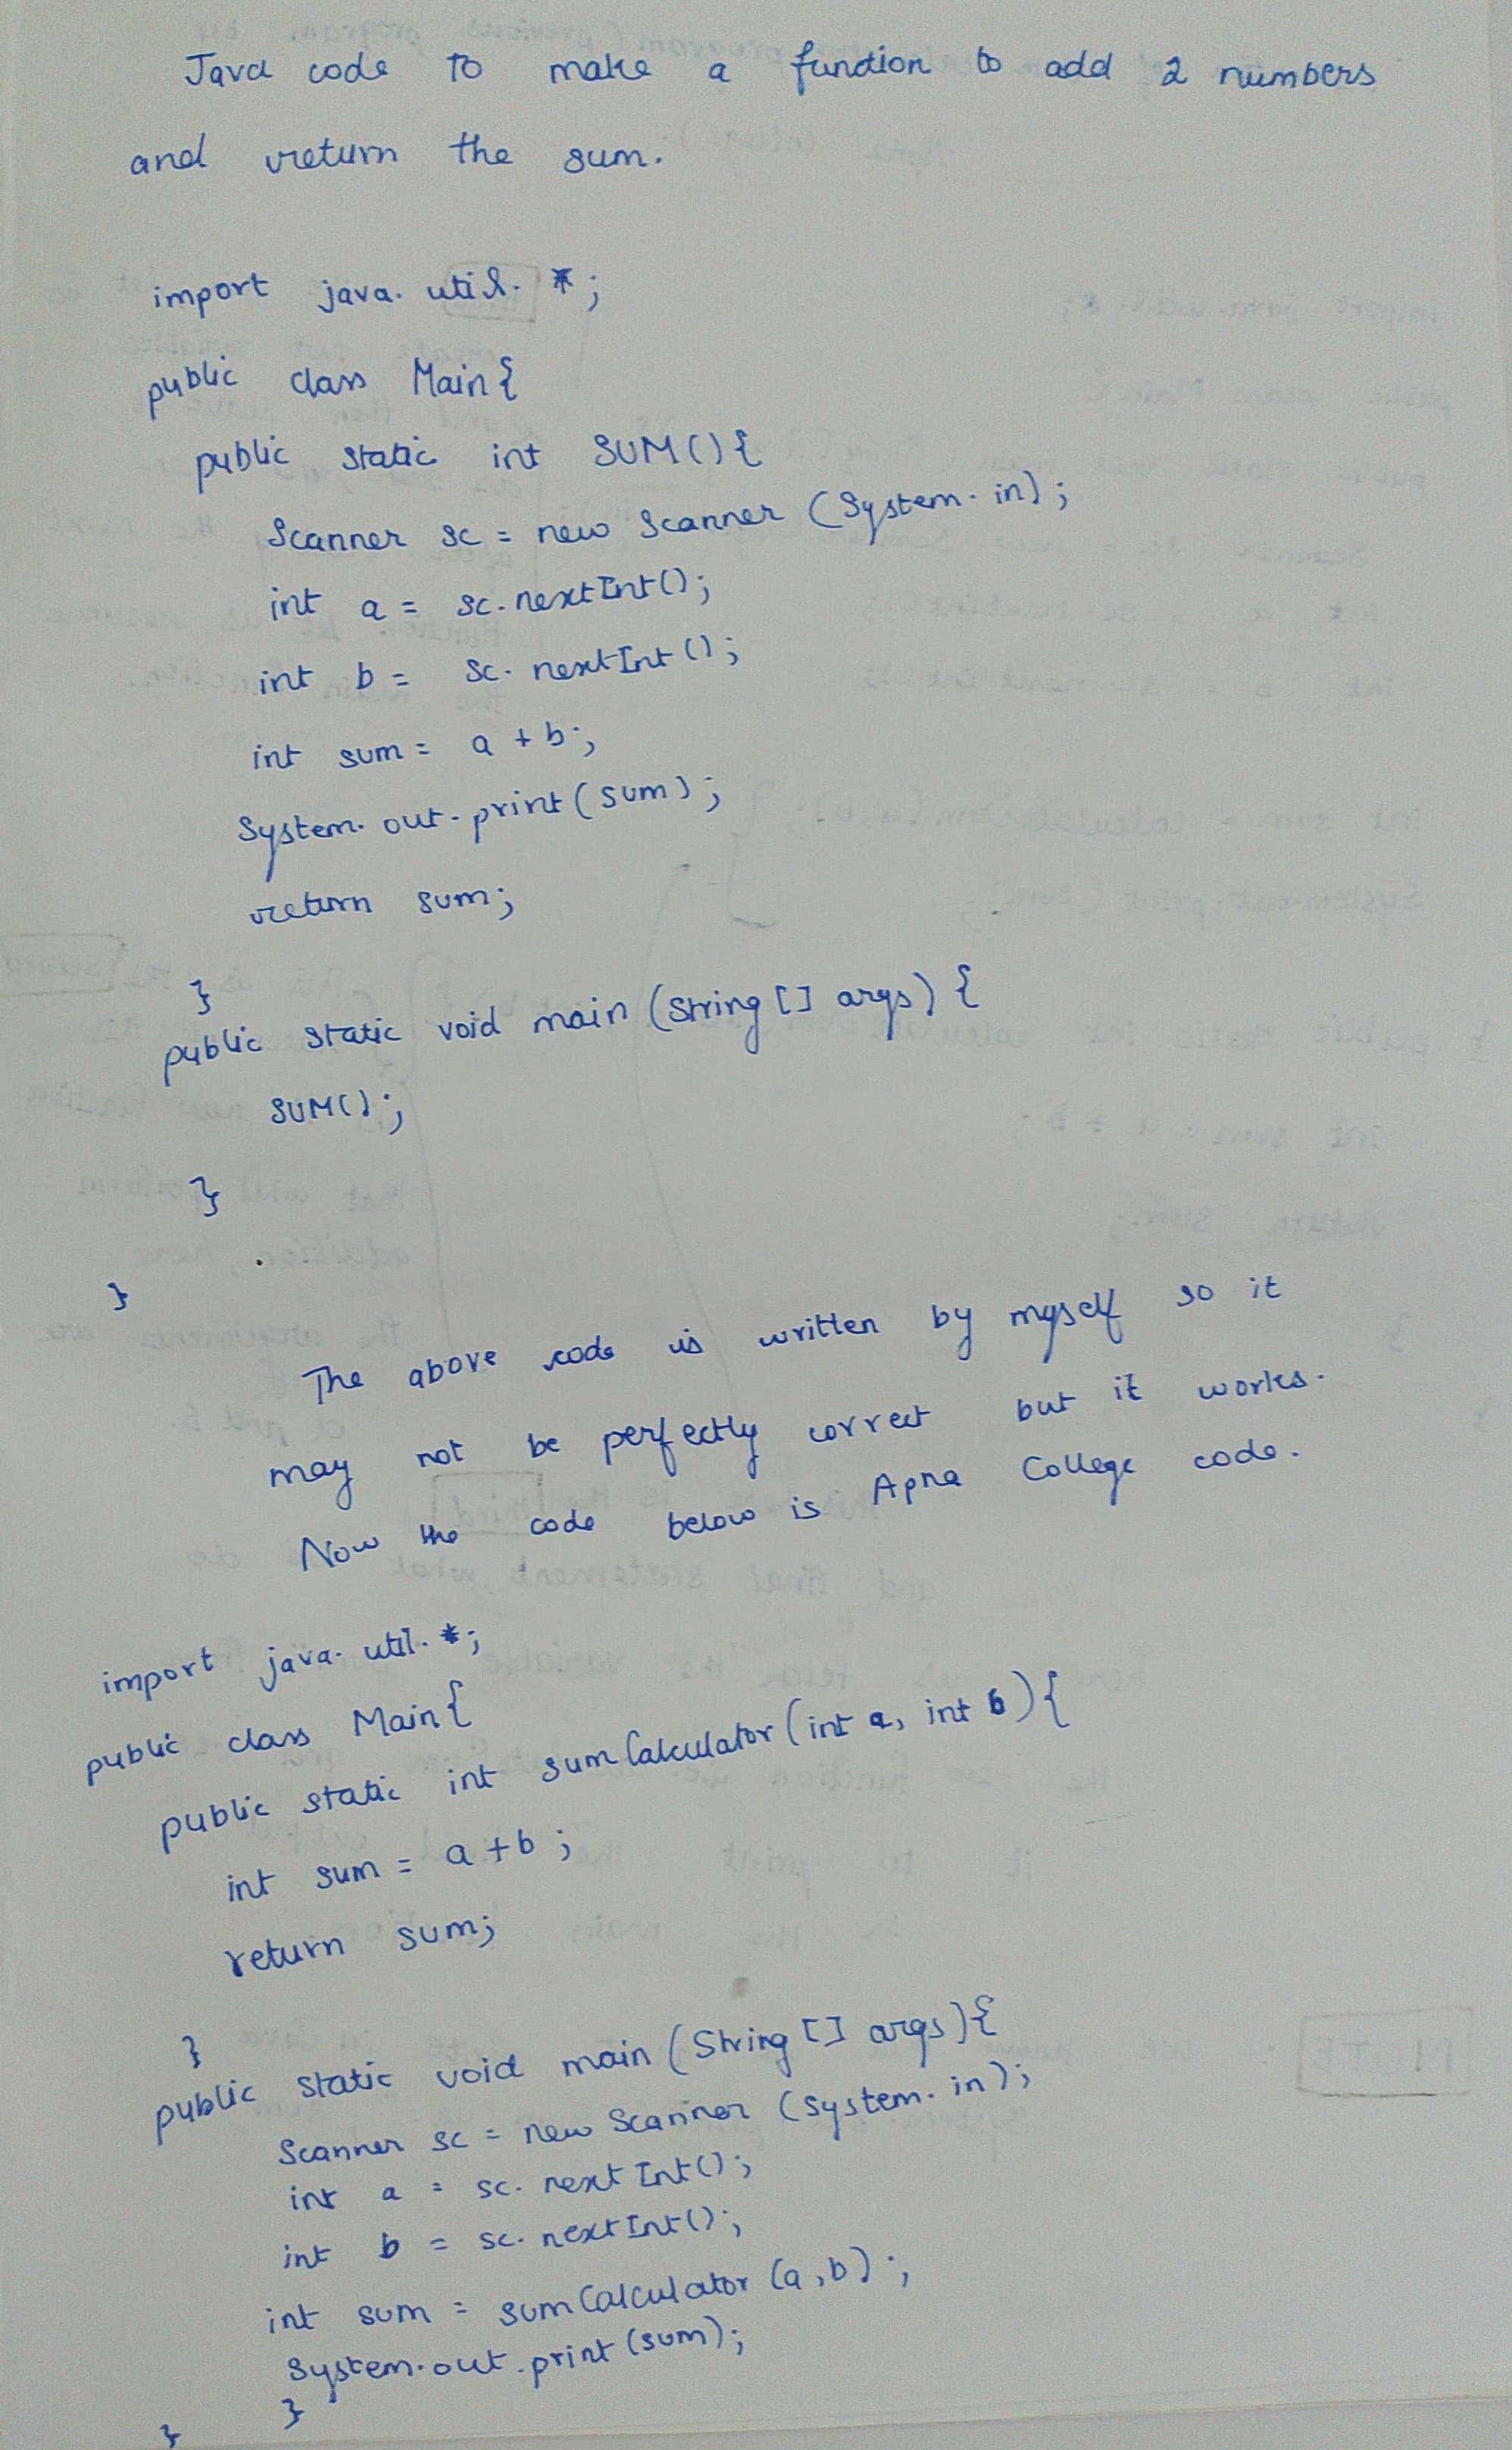 Java code to make a function to add 2 numbers
and return the sum.
import java.util.*;
public class Main{
public static int SUM(){
Scanner sc = new Scanner (System.in);
int a = sc.nextInt();
int b = sc.nextInt();
int sum = a + b;
System.out.print(sum);
return sum;
}
public static void main (String [] args) {
SUM();
}
}
The above code is written by myself so it
may not be perfectly correct but it works.
Now the code below is Apna College code.
import java.util.*;
public class Main{
public static int sumCalculator (int a, int b){
int sum = a + b;
return sum;
}
public static void main (String [] args){
Scanner sc = new Scanner (System.in);
int a = sc.nextInt();
int b = sc.nextInt();
int sum = sumCalculator (a,b);
System.out.print (sum);
}
}